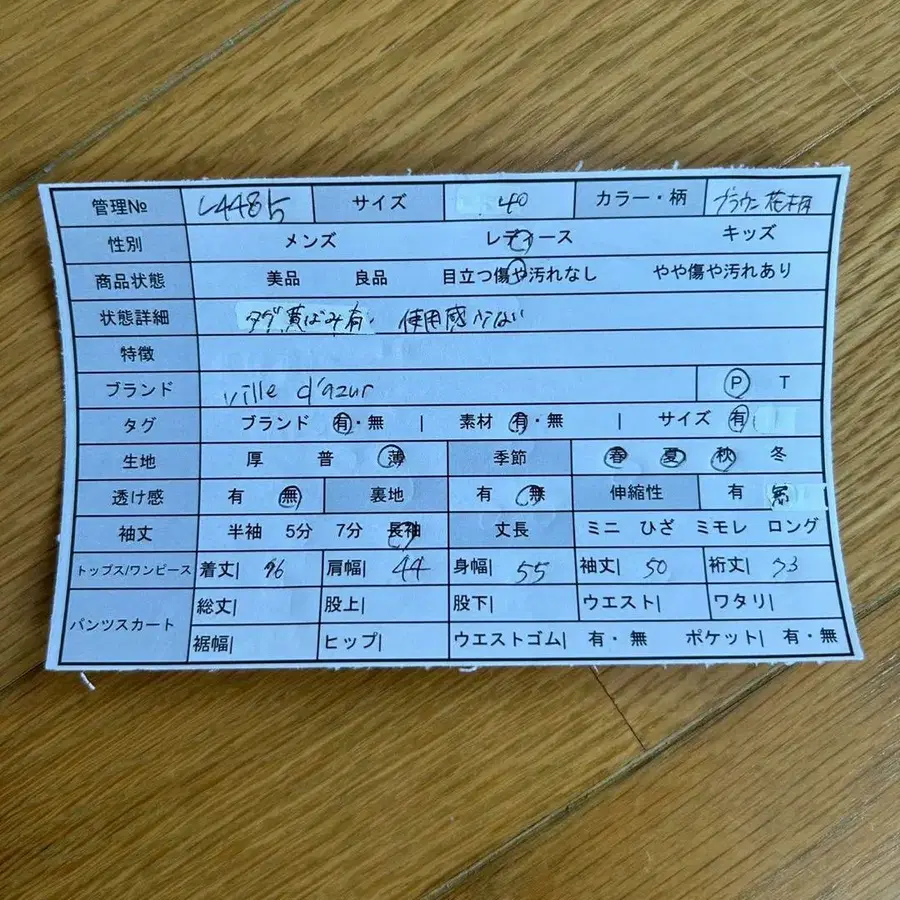 管理№ L4485 サイズ 40 カラー・柄 ブラウン花柄
性別 メンズ レディース キッズ
商品状態 美品 良品 目立つ傷や汚れなし やや傷や汚れあり
状態詳細 タグ黄ばみ有 使用感少ない
特徴
ブランド ville d'azur P T
タグ ブランド 有・無 | 素材 有・無 | サイズ 有
生地 厚 普 薄 季節 春 夏 秋 冬
透け感 有 無 裏地 有 無 伸縮性 有 無
袖丈 半袖 5分 7分 長袖 丈長 ミニ ひざ ミモレ ロング
トップス/ワンピース 着丈| 肩幅| 44 身幅| 55 袖丈| 50 裄丈|
パンツスカート 総丈| 股上| 股下| ウエスト| ワタリ|
裾幅| ヒップ| ウエストゴム| 有・無 ポケット| 有・無